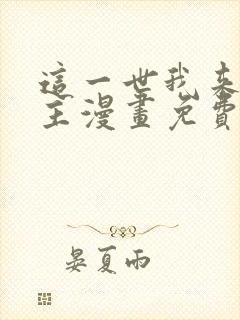 這一世我來
主漫畫免費
晏夏雨